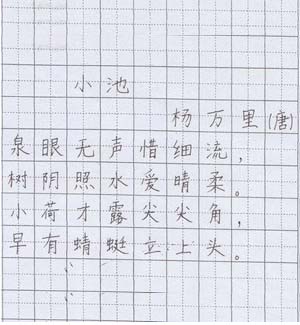 小池
杨万里(唐)
泉眼无声惜细流，
树阴照水爱晴柔。
小荷才露尖尖角，
早有蜻蜓立上头。